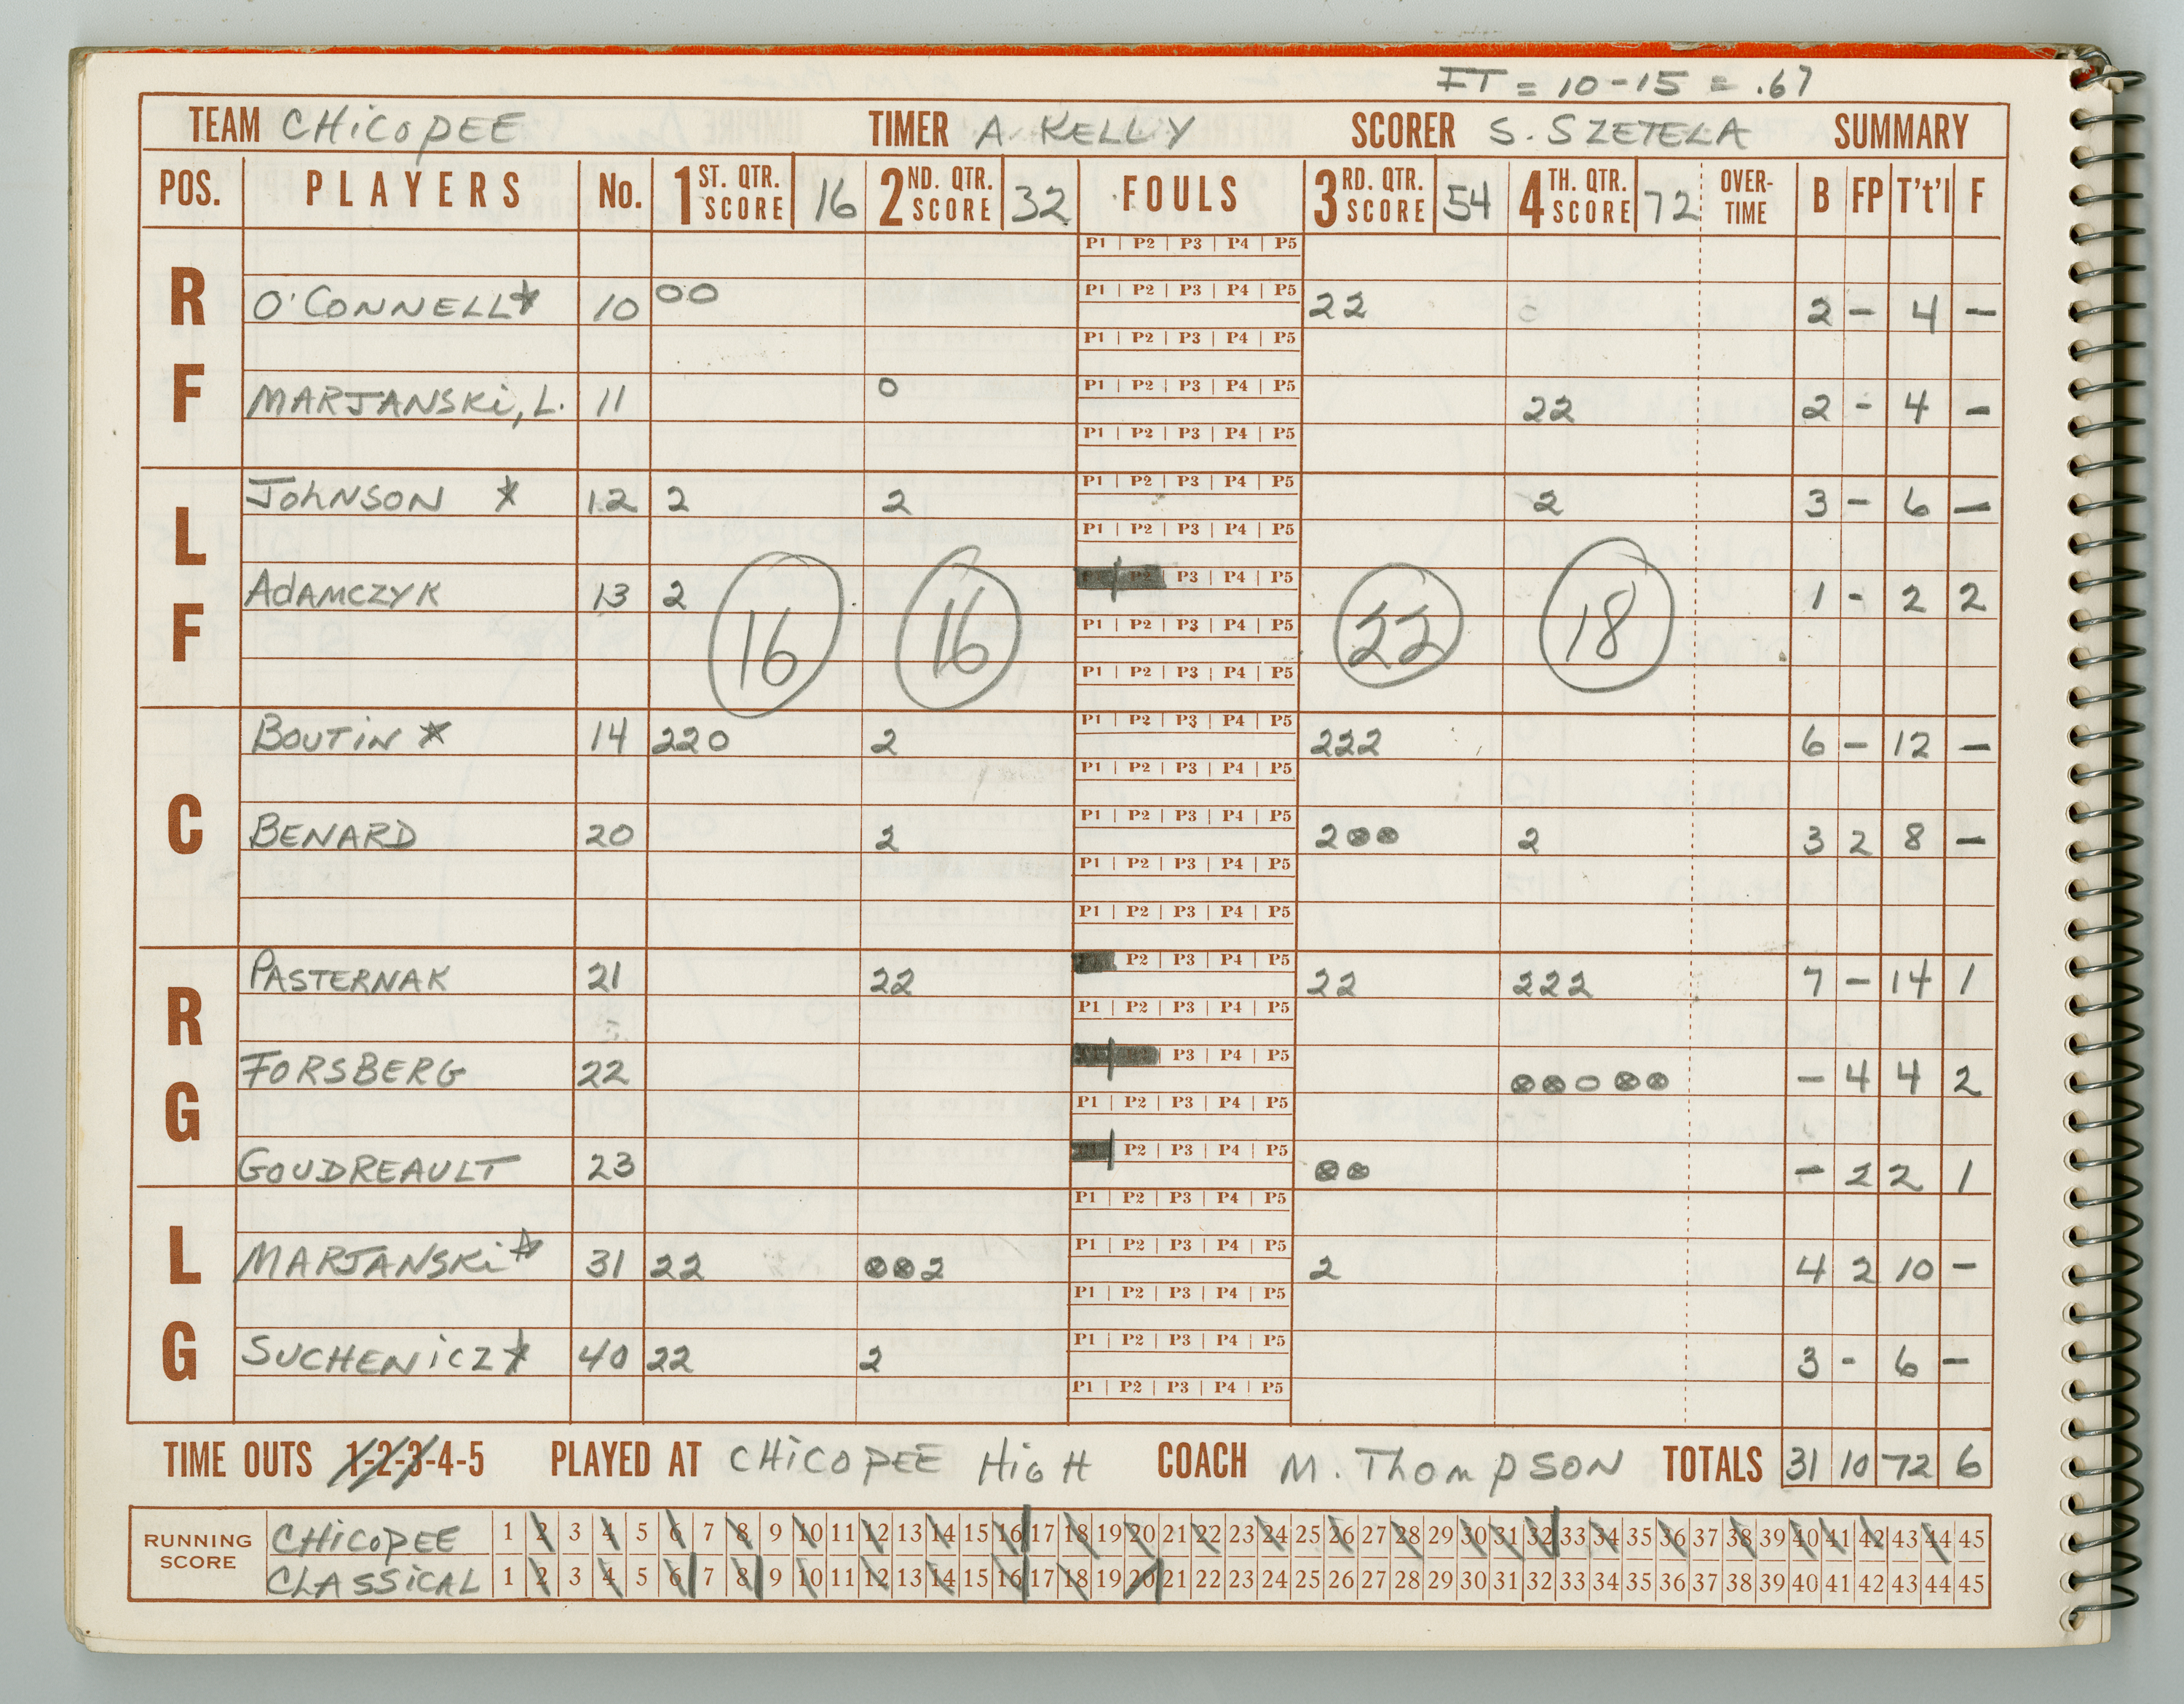 FT = 10-15 = .67
TEAM CHiCOPEE TIMER A. KELLY SCORER S. SZETELA SUMMARY
POS. PLAYERS No. 1ST. QTR. SCORE 16 2ND. QTR. SCORE 32 FOULS 3RD. QTR. SCORE 54 4TH. QTR. SCORE 72 OVER-TIME B FP T't'l F
P1 | P2 | P3 | P4 | P5
RF O'CONNELL* 10 00 P1 | P2 | P3 | P4 | P5 22 2 - 4 -
P1 | P2 | P3 | P4 | P5
MARJANSKi, L. 11 0 P1 | P2 | P3 | P4 | P5 22 2 - 4 -
P1 | P2 | P3 | P4 | P5
LF JOHNSON * 12 2 2 P1 | P2 | P3 | P4 | P5 2 3 - 6 -
P1 | P2 | P3 | P4 | P5
ADAMCZYK 13 2 P3 | P4 | P5 1 - 2 2
16 16 P1 | P2 | P3 | P4 | P5 22 18
P1 | P2 | P3 | P4 | P5
C BOUTiN * 14 220 2 P1 | P2 | P3 | P4 | P5 222 6 - 12 -
P1 | P2 | P3 | P4 | P5
BENARD 20 2 P1 | P2 | P3 | P4 | P5 2⊗⊗ 2 3 2 8 -
P1 | P2 | P3 | P4 | P5
P1 | P2 | P3 | P4 | P5
RG PASTERNAK 21 22 P2 | P3 | P4 | P5 22 222 7 - 14 1
P1 | P2 | P3 | P4 | P5
FORSBERG 22 P3 | P4 | P5 ⊗⊗0⊗⊗ - 4 4 2
P1 | P2 | P3 | P4 | P5
GOUDREAULT 23 P2 | P3 | P4 | P5 ⊗⊗ - 2 2 1
P1 | P2 | P3 | P4 | P5
LG MARJANSKi* 31 22 ⊗⊗2 P1 | P2 | P3 | P4 | P5 2 4 2 10 -
P1 | P2 | P3 | P4 | P5
SUCHENiCZ* 40 22 2 P1 | P2 | P3 | P4 | P5 3 - 6 -
P1 | P2 | P3 | P4 | P5
TIME OUTS 1-2-3-4-5 PLAYED AT CHiCOPEE HiGH COACH M. THOMPSON TOTALS 31 10 72 6
RUNNING SCORE
CHiCOPEE 1 2 3 4 5 6 7 8 9 10 11 12 13 14 15 16 17 18 19 20 21 22 23 24 25 26 27 28 29 30 31 32 33 34 35 36 37 38 39 40 41 42 43 44 45
CLASSiCAL 1 2 3 4 5 6 7 8 9 10 11 12 13 14 15 16 17 18 19 20 21 22 23 24 25 26 27 28 29 30 31 32 33 34 35 36 37 38 39 40 41 42 43 44 45